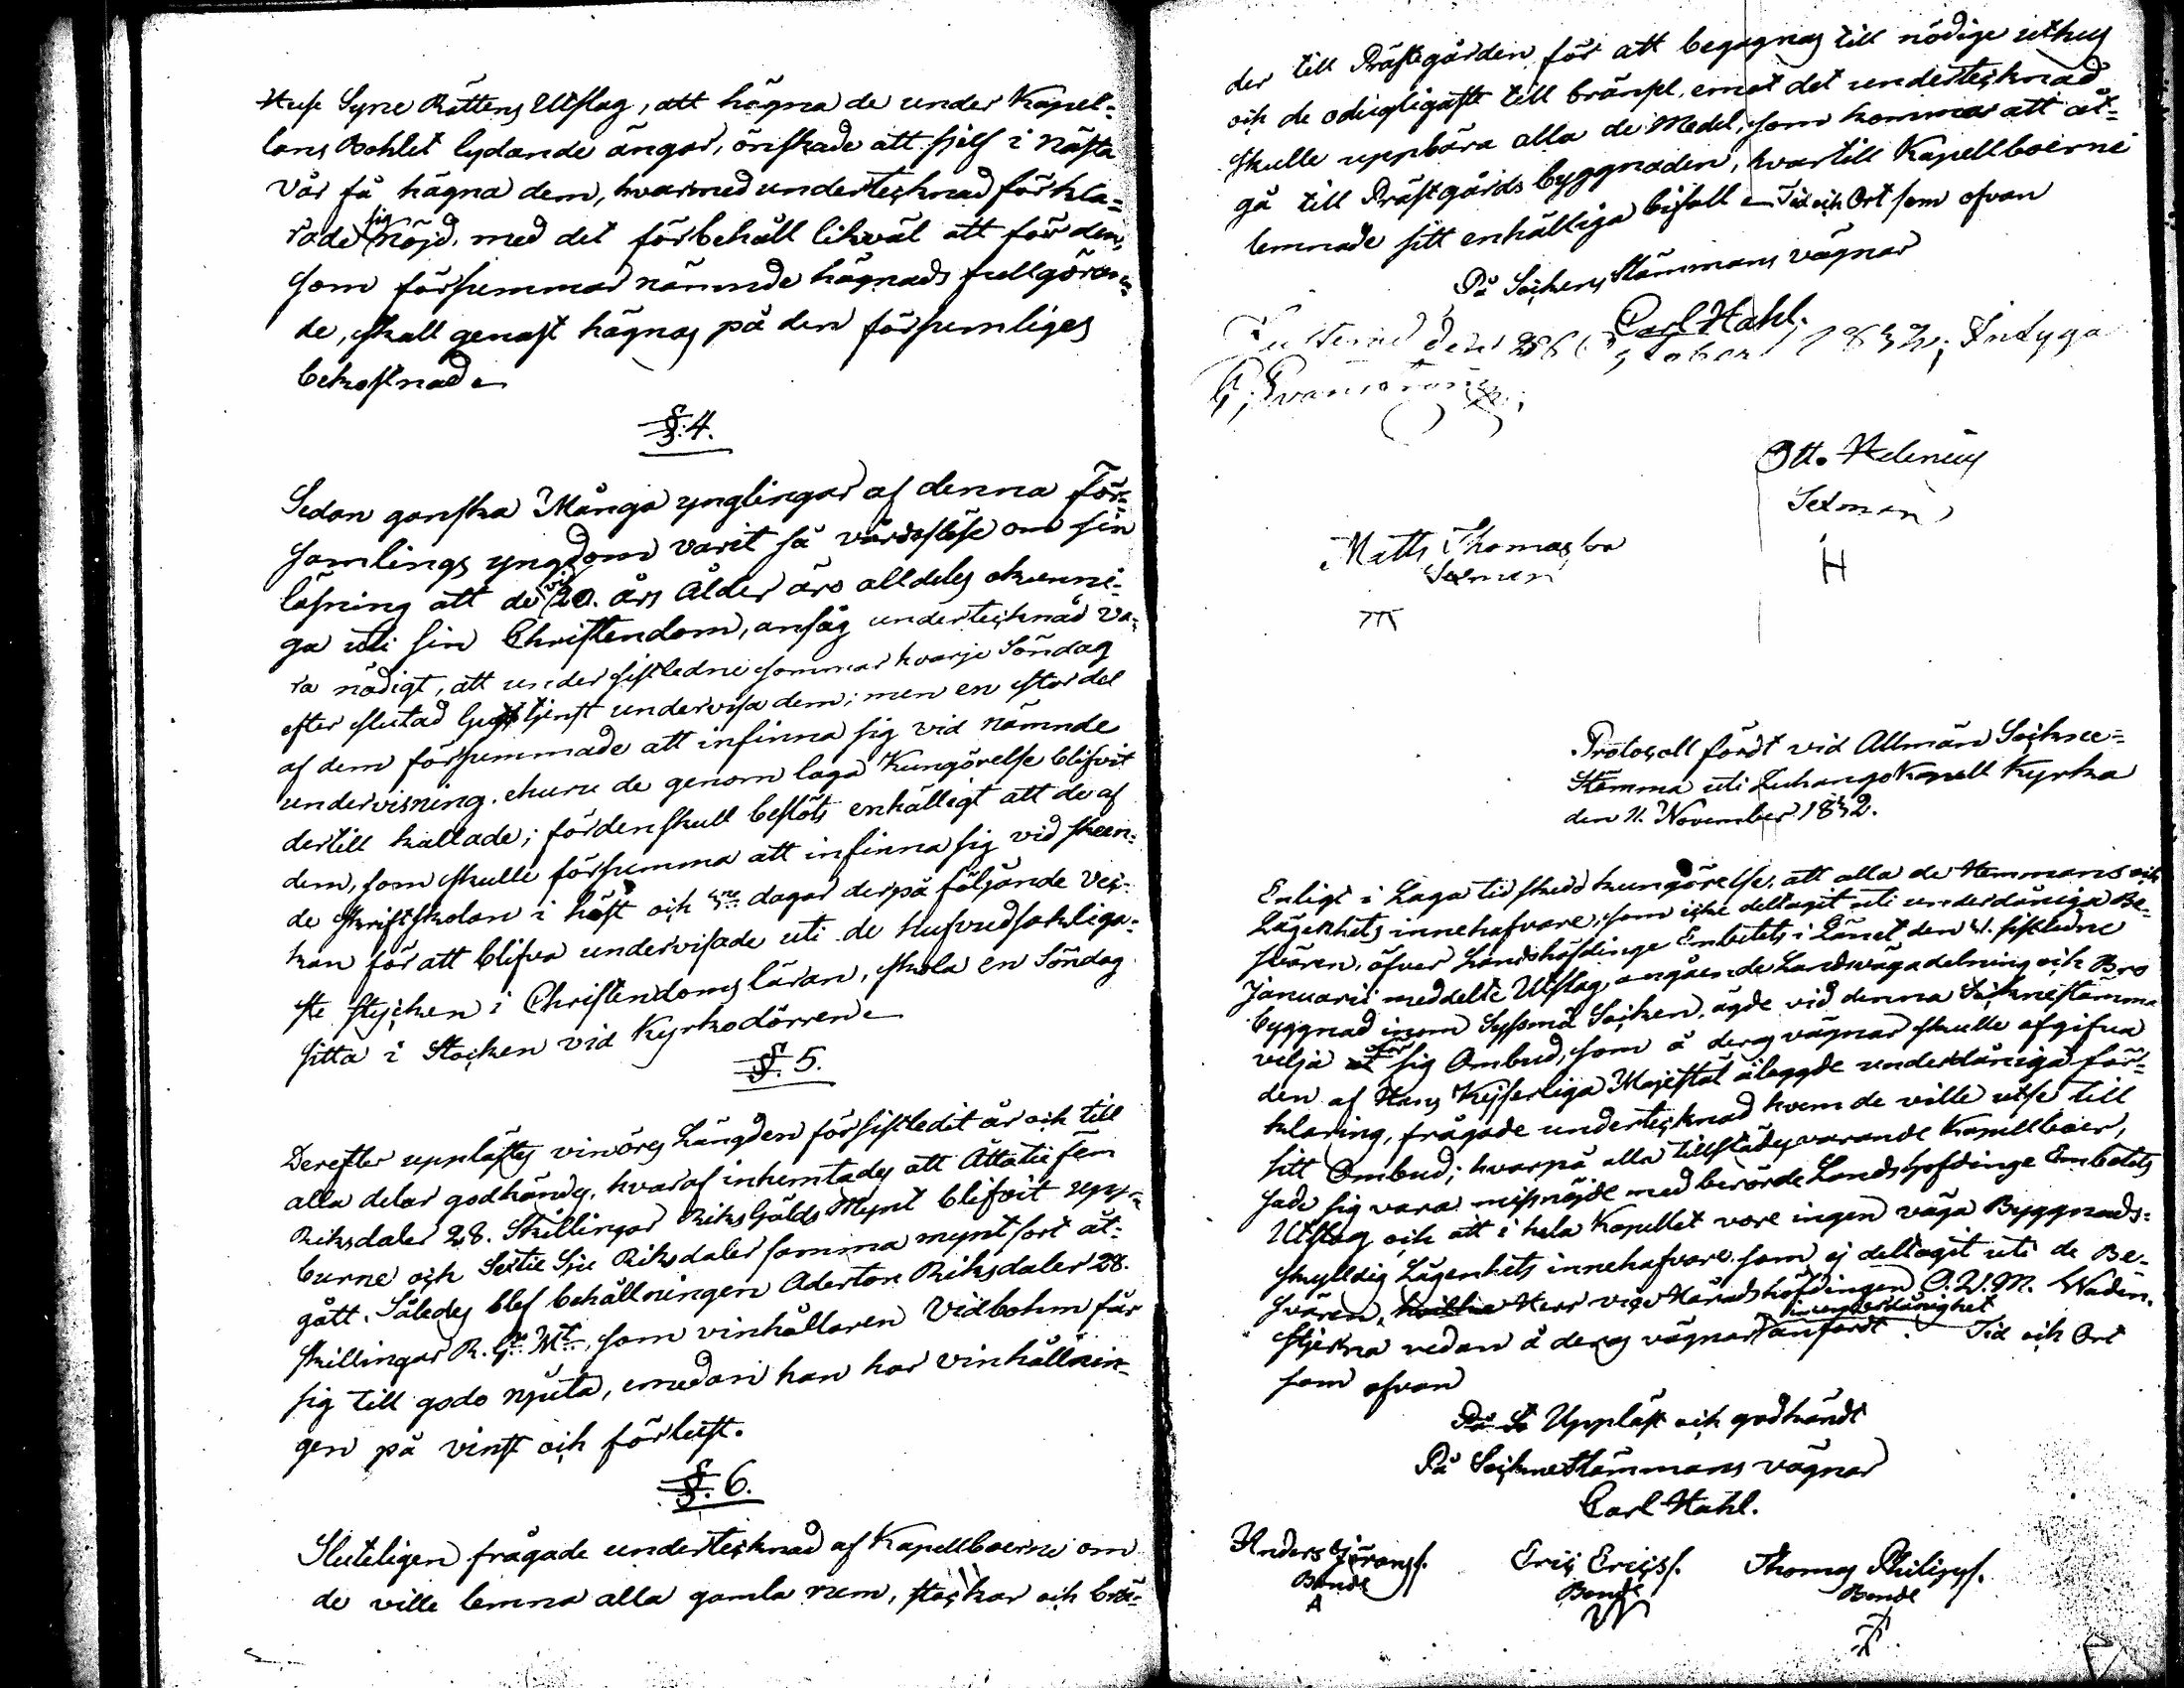 Huse Syne Rättens Utslag, att hägna de under Kapel-
lans Bohlet lydande ängar, önskade att sjelf i nästa
vår få hägna dem, hvarmed undertecknad förkla-
rade sig nöjd, med det förbehåll likväl att för den,
som försummar nämnde hägnads fullgöran-
de, skall genast hägnas på den försumliges
bekostnad.
§. 4.
Sedan ganska Många ynglingar af denna För-
samlings yngdom varit så vårdslöse om sin
läsning att de vid 20. års Ålder äro alldeles okunni-
ga uti sin Christendom, ansåg undertecknad va-
ra nödigt, att under sistledne sommar hvarje Söndag
efter slutad Gudstjenst undervisa dem; men en stor del
af dem försummade att infinna sig vid nämnde
undervisning, ehuru de genom laga Kungörelse blifvit
dertill kallade; fördenskull beslöts enhälligt att de af
dem, som skulle försumma att infinna sig vid skeen-
de skriftskolan i höst och 3ne dagar derpå följande vec-
kan för att blifva undervisade uti de hufvudsakliga-
ste stycken i Christendoms läran, skola en Söndag
sitta i Stocken vid Kyrkodörren.
§. 5.
Derefter upplästes vinöres Längden för sistledit år och till
alla delar godkändes, hvaraf inhemtades att Åttatie fem
Riksdaler 28. Skillingar Riks Gälds Mynt blifvit upp-
burne och Sextie Sju Riksdaler samma myntsort åt-
gått. Således blef behållningen Aderton Riksdaler 28.
skillingar R. Gs. Mt., som vinhållaren Vidbohm får
sig till godo njuta, emedan han har vinhållnin-
gen på vinst och förlust.
§. 6.
Sluteligen frågade undertecknad af Kapellboerne om
de ville lemna alla gamla rum, stockar och brä-
der till Prästgården för att begagnas till nödige uthus
och de odugligaste till bränsl. emot det undertecknad
skulle uppbära alla de Medel, som kommer att åt-
gå till Prästgårds byggnaden, hvartill Kapellboerne
lemnade sitt enhälliga bifall. Tid och Ort som ofvan
På Sockens Stämmans vägnar
Carl Hahl.
Justerad den 28 October 1832; Intyga
Otto Helenius
Sexman
H
Matts Thomasson
Sexman
Protocoll fördt vid Allmän Sockne-
Stämma uti Luhango Kapell Kyrka
den 11. November 1832.
Enligt i Laga tid skedd kungörelse, att alla de Hemmans och
Lägenhets innehafvare, som icke deltagit uti underdåniga Be-
svären, öfver Landshöfdinge Embetets i Länet den 31. sistledne
Januarii meddelte Utslag angående Landsvägadelning och Bro
byggnad inom Sysmä Socken, ägde vid denna Socknestämma
välja åt för sig Ombud, som å deras vägnar skulle afgifva
den af Hans Kejserliga Majestät ålaggde underdåniga för-
klaring, frågade undertecknad hvem de ville utse till
sitt Ombud; hvarpå alla tillstädesvarande Kapellboer,
sade sig vara missnöjde med berörde Landshöfdinge Embetets
Utslag och att i hela Kapellet vore ingen väga Byggnads-
skyldig Lägenhets innehafvare som ej deltagit uti de Be-
svären, hvilka Herr vice Häradshöfdingen C. W. M. Wadén-
stjerna redan å deras vägnar i underdånighet anfördt. Tid och Ort
som ofvan
På So Uppläst och godkändt
På Sockne Stämmans vägnar
Carl Hahl.
Anders Göranss.
Bonde
A
Eric Ericss.
Bonde
Thomas Philipss.
Bonde